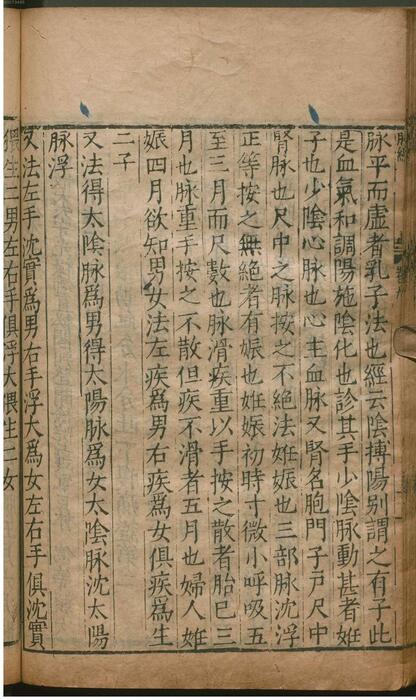 脉平而虛者乳子法也經云陰搏陽別謂之有子此
是血氣和調陽施陰化也診其手少陰脉動甚者妊
子也少陰心脉也心主血脉又腎名胞門子戶尺中
腎脉也尺中之脉按之不絕法妊娠也三部脉沈浮
正等按之無絕者有娠也妊娠初時寸微小呼吸五
至三月而尺數也脉滑疾重以手按之散者胎巳三
月也脉重手按之不散但疾不滑者五月也婦人妊
娠四月欲知男女法左疾爲男右疾爲女俱疾爲生
二子
又法得太陰脉爲男得太陽脉爲女太陰脉沈太陽
脉浮
又法左手沈實爲男右手浮大爲女左右手俱沈實
猥生二男左右手俱浮大猥生二女